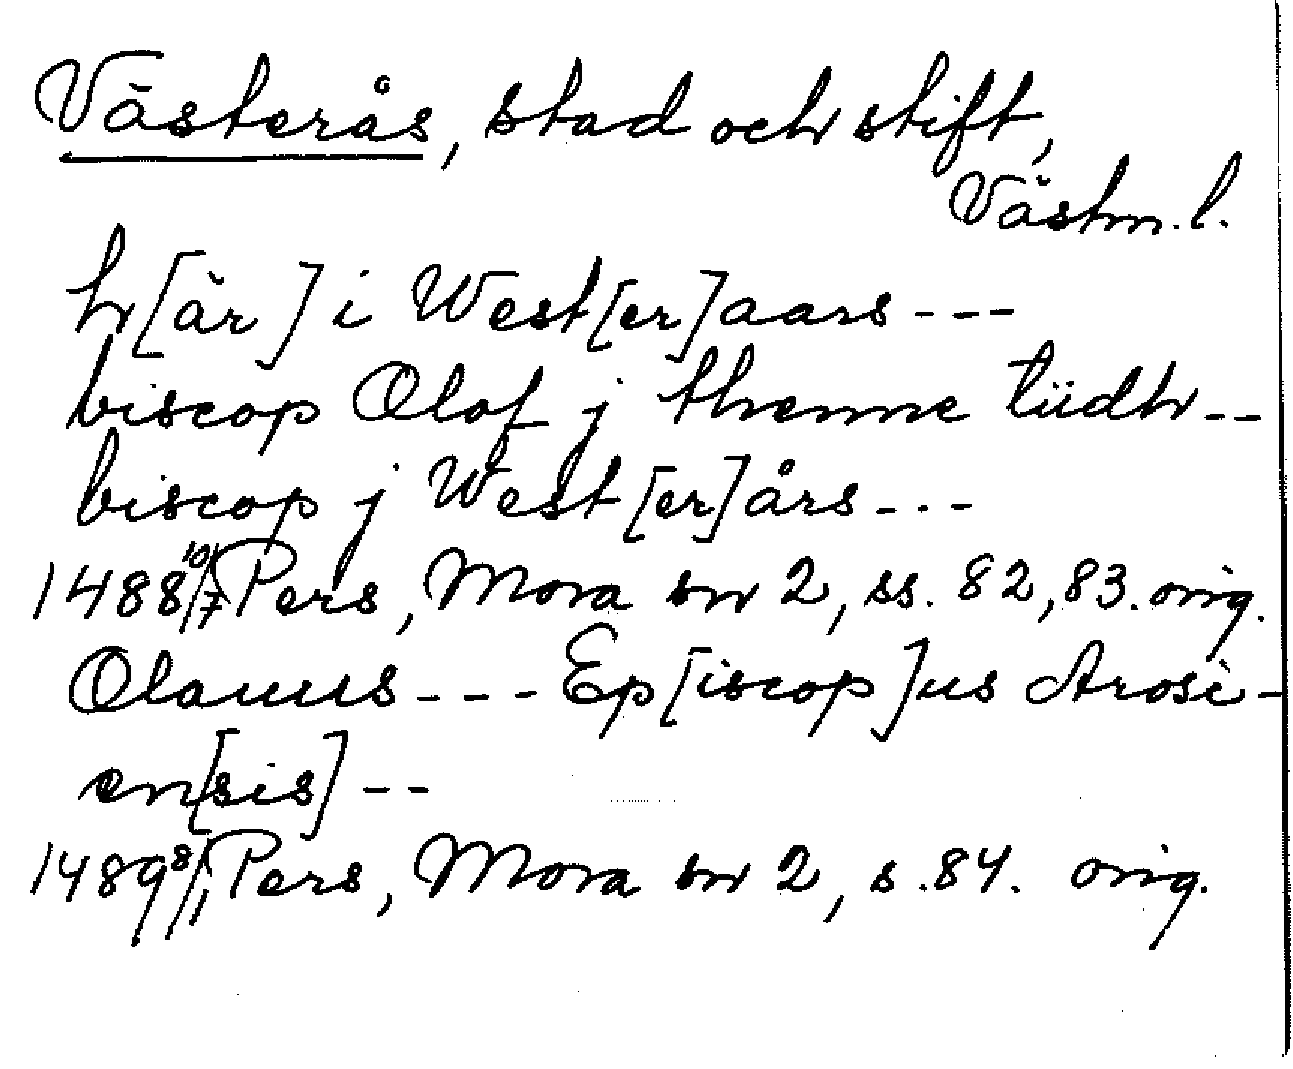 Västerås, stad och stift,
Västm.l.
h[är] i West[er]aars ---
biscop Olof j thenne tüdh --
biscop j West[er]års ---
1488 10/7 Pers, Mora sn 2, ss. 82, 83. orig.
Olauus --- Ep[iscop]us Arosi-
en[sis] --
1489 8/1 Pers, Mora sn 2, s. 84. orig.